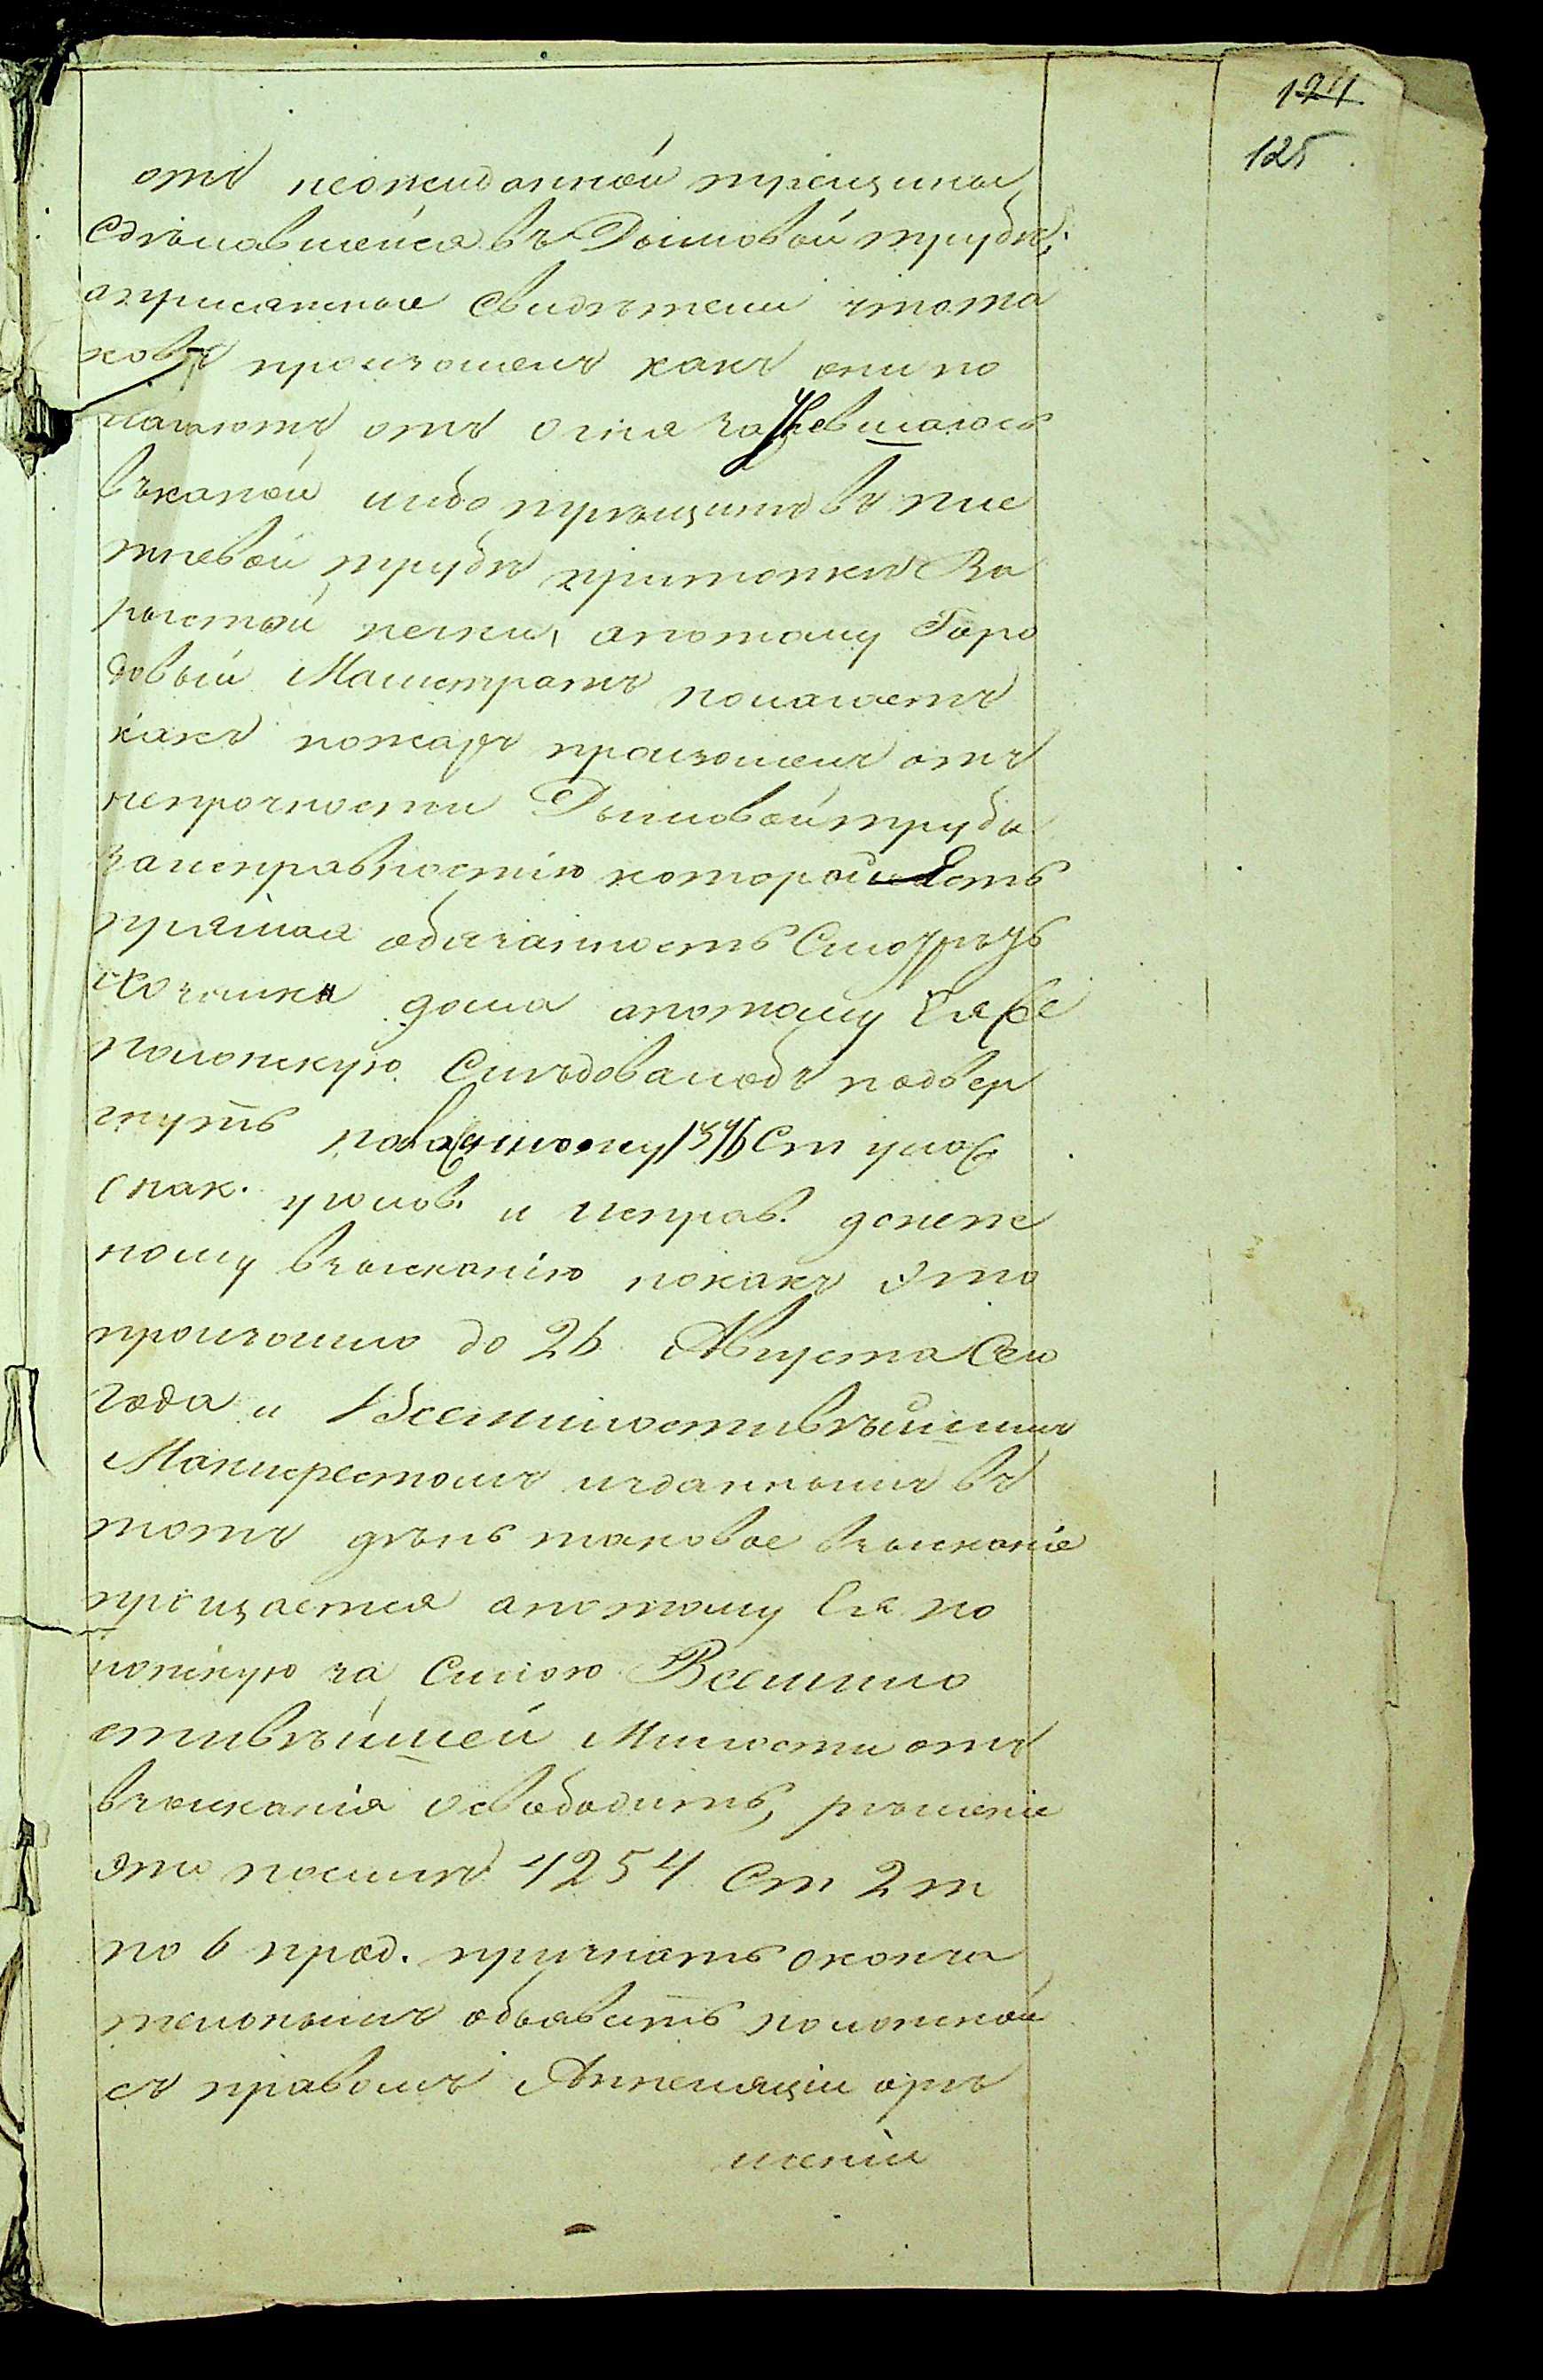 124
125
отъ неожиданной трещины
сдѣлавшейся въ Дымовой трубѣ,
априсяжные свидѣтели чтота
ковъ произошелъ какъ они по
лагаютъ отъ огня за
въкакой либо трещинѣ въ пле
тневой трубѣ притопкѣ Ва
ристой печки, апотому Горо
довый Магистратъ полагаетъ
какъ пожаръ произошелъ отъ
непрочности Дымовой трубы
заисправностію которой есть
прямая обязанность Смотрѣть
хозяика дома апотому Ея бе
полонскую Слѣдовалобъ подвер
гнуть 1376 Ст улож
о нак. уголов. и исправ. денеж
ному взысканію нокакъ это
произошло до 26 Августа Сего
года и Всемилостивѣйшимъ
Манифестомъ изданнымъ въ
тотъ день таковое взысканіе
прощается апотому Ея по
лонскую за Силою Всемило
стивѣйшей Милости отъ
взысканія освободить, рѣшеніе
это посилѣ 4254 Ст 2 т
по 6 прод. признать оконча
тельнымъ объявить полонской
съ правомъ Аппеляціи орѣ
шеніи